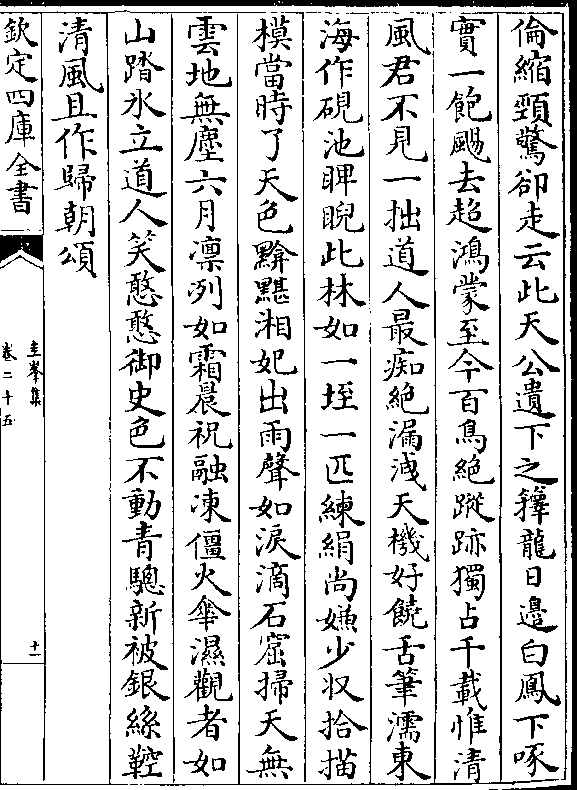 倫縮頸驚卻走云此天公遺下之籜龍日邉白鳳下啄
實一飽颺去超鴻蒙至今百鳥絶蹤跡獨占千載惟清
風君不見一拙道人最痴絶漏洩天機好饒舌筆濡東
海作硯池睥睨此林如一垤一匹練絹尚嫌少収拾描
模當時了天色黲黮湘妃出雨聲如淚滴石窟掃天無
雲地無塵六月凛冽如霜晨祝融凍僵火傘濕觀者如
山踏氷立道人笑憨憨御史色不動青驄新被銀絲鞚
清風且作歸朝頌
欽定四庫全書
圭峯集
卷二十五
十一